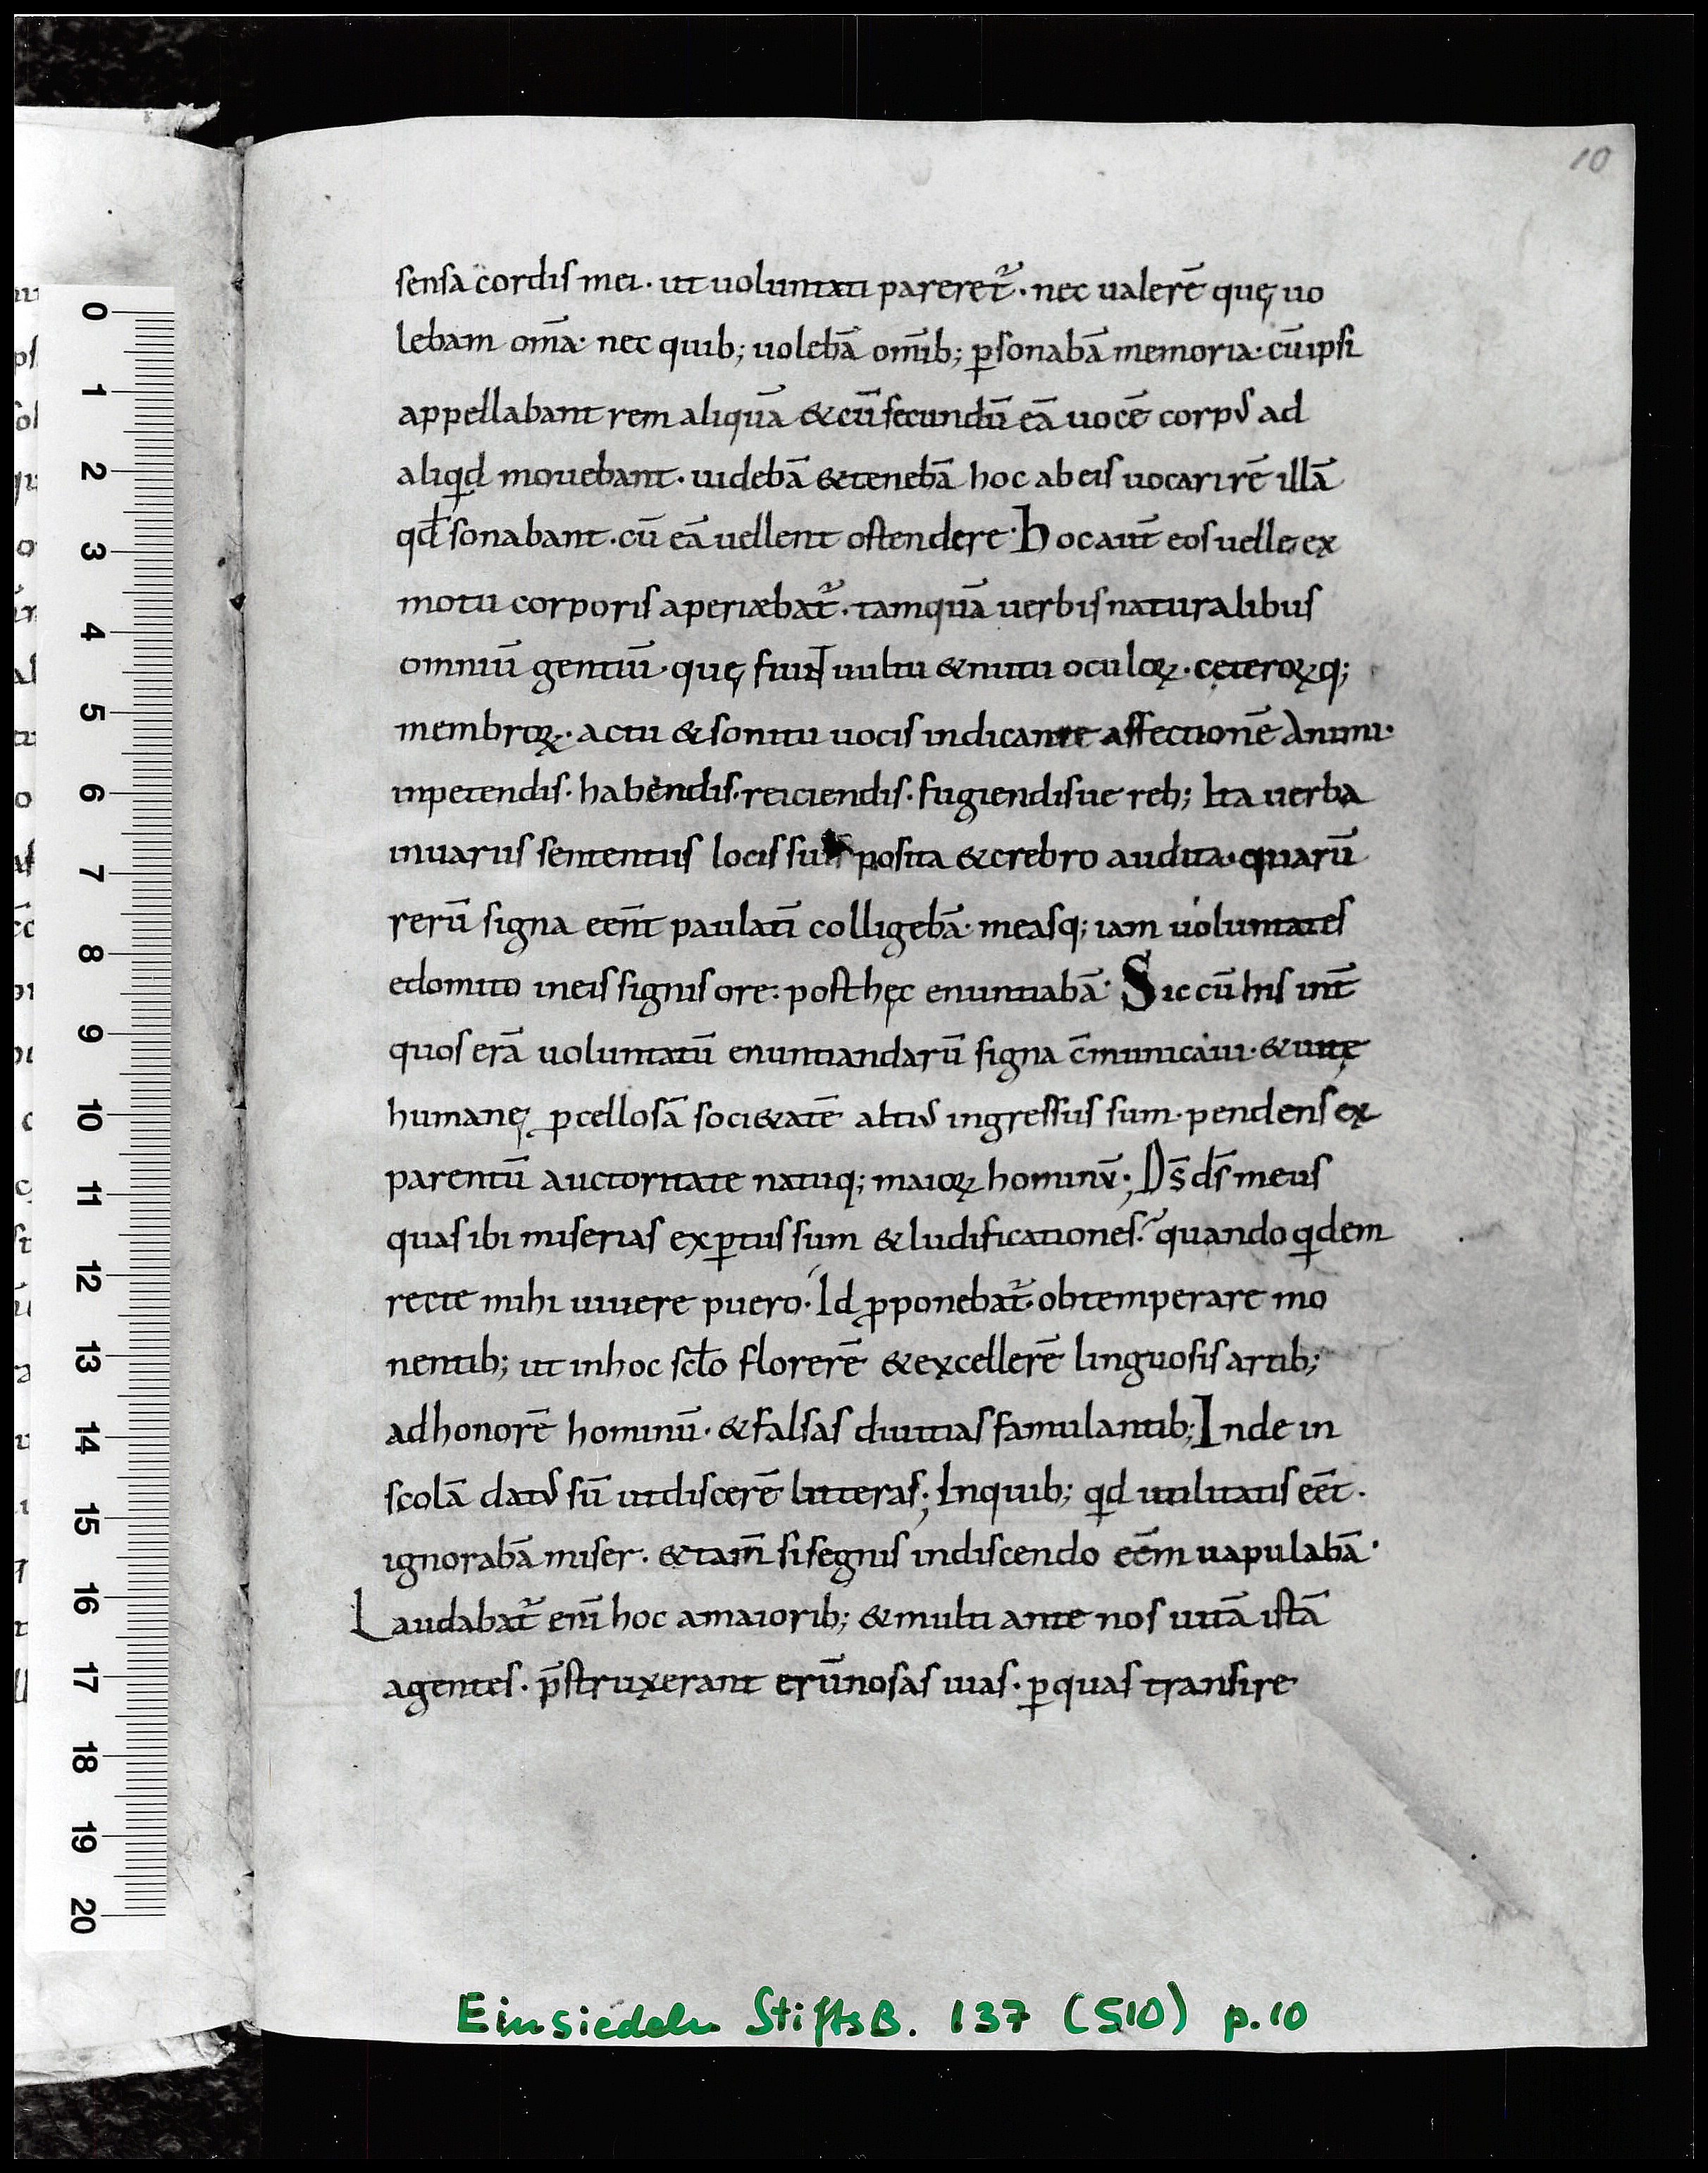 10
sensa cordis mei · ut uoluntati pareret᷑ · nec ualerē quę uo
lebam om̄a · nec quib; uolebā om̄ib; ꝑsonabā memoria · cū ipsi
appellabant rem aliquā & cū secundū eā uocē corpꝰ ad
aliqd mouebant · uidebā & tenebā hoc ab eis uocari rē illā
qd̄ sonabant · cū eā uellent ostendere · Hoc aut̄ eos uelle ex
motu corporis aperiæbat᷑ · tamquā uerbis naturalibus
omniū gentiū · quę fiunt uultu & nutu oculoꝝ · cęteroꝝq;
membroꝝ · actu & sonitu uocis indicante affectionē Animi ·
inpetendis · habendis · reiciendis · fugiendisue reb; Ita uerba
inuariis sententiis locis suis posita & crebro audita · quarū
rerū signa eēnt paulatī colligebā · measq; iam uoluntates
edomito in eis signis ore · post hęc enuntiabā · Sic cū his int̄
quos erā uoluntatū enuntiandarū signa c̄municaui · & uitę
humanę ꝓcellosā soci&atē altiꝰ ingressus sum · pendens ex
parentū auctoritate natuq; maioꝝ hominū · Ds̄ ds̄ meus
quas ibi miserias exꝑtus sum & ludificationes · quando qdem
recte mihi uiuere puero · Id ꝓponebat᷑ · obtemperare mo
nentib; ut in hoc scło florerē & excellerē linguosis artib;
ad honorē hominū · & falsas diuitias famulantib; Inde in
scolā datꝰ sū ut discerē litteras; In quib; qd utilitatis eēt ·
ignorabā miser · & tam̄ si segnis in discendo eēm uapulabā ·
Laudabat᷑ enī hoc a maiorib; & multi ante nos uitā istā
agentes · p̄struxerant erūnosas uias · ꝑ quas transire
0
1
2
3
4
5
6
7
8
9
10
11
12
13
14
15
16
17
18
19
20
Einsiedeln StiftsB. 137 (510) p. 10